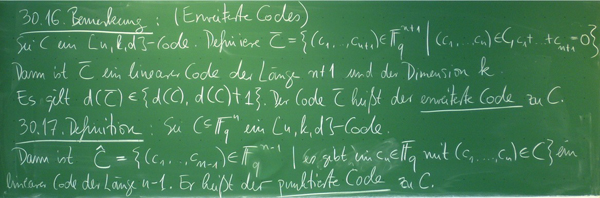 30.16. Bemerkung: (Erweiterte Codes)
Sei C ein [n,k,d]-Code. Definiere C̅ = {(c₁,...,cₙ₊₁) ∈ 𝔽_q^{n+1} | (c₁,...,cₙ) ∈ C, c₁+...+cₙ₊₁=0}
Dann ist C̅ ein linearer Code der Länge n+1 und der Dimension k.
Es gilt d(C̅) ∈ {d(C), d(C)+1}. Der Code C̅ heißt der erweiterte Code zu C.
30.17. Definition: Sei C ⊆ 𝔽_q^n ein [n,k,d]-Code.
Dann ist Ĉ = {(c₁,...,cₙ₋₁) ∈ 𝔽_q^{n-1} | es gibt ein cₙ ∈ 𝔽_q mit (c₁,...,cₙ) ∈ C} ein
linearer Code der Länge n-1. Er heißt der punktierte Code zu C.